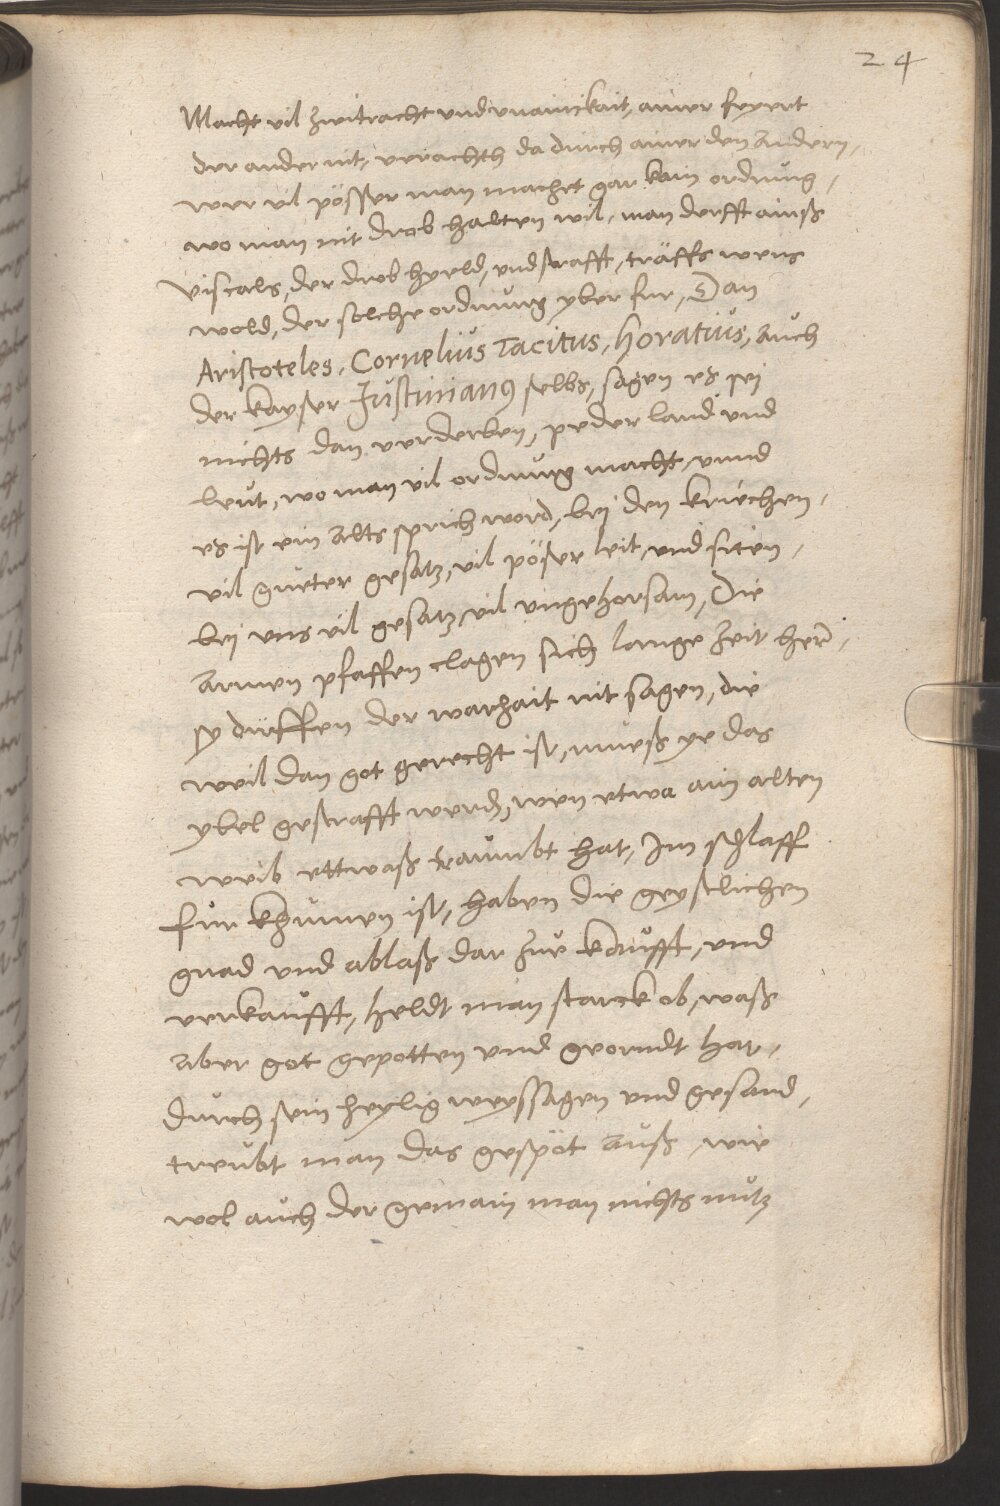 24
Macht vil zwitracht und unainickait, ainer feyert
der ander nit, verachth da durch ainer den andern,
wer vil pösser man machet gar kain ordnung,
wo man nit drob halten wil, man derfft ainß
viscals, der drob hyeld, und strafft, träffs wens
wold, der solche ordnung yber fur, Dan
Aristoteles, Cornelius Tacitus, Horatius, auch
der kayser Justinianus selbs, sagen es sei
nichts dan verderben, peder land und
leut, wo man vil ordnung macht, unnd
es ist ein alts sprichword, bei den kriechen,
vil gueter gesatz, vil pöser leit, und siten,
bei uns vil gesatz, vil ungehorsam, Die
armen pfaffen clagen sich lange zeit her,
sy dürffen der warhait nit sagen, die
weil dan got gerecht ist, mueß ye das
ybel gestrafft werden, wen etwa ain alten
weib ettwaß traumbt hat, Im schlaff
für khumen ist, haben die geystlichen
gnad und ablaß dar zue kaufft, und
verkaufft, heldt man starck ob, waß
aber got gepotten und georndt hat,
durch sein heylig weyssagen und gesand,
treubt man das gespöt auß, wie
wol auch der gemain man nichts nutz